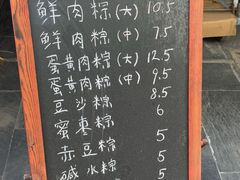 鲜肉粽(大) 10.5
鲜肉粽(中) 7.5
蛋黄肉粽(大) 12.5
蛋黄肉粽(中) 9.5
豆沙粽 8.5
蜜枣粽 6
赤豆粽 5
碱水粽 5
5